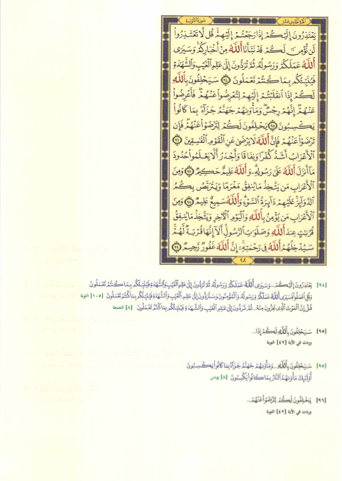 الجزء الحادي عشر
سورة التوبة
يَعْتَذِرُونَ إِلَيْكُمْ إِذَا رَجَعْتُمْ إِلَيْهِمْ قُل لَّا تَعْتَذِرُوا
لَن نُّؤْمِنَ لَكُمْ قَدْ نَبَّأَنَا اللَّهُ مِنْ أَخْبَارِكُمْ وَسَيَرَى
اللَّهُ عَمَلَكُمْ وَرَسُولُهُ ثُمَّ تُرَدُّونَ إِلَىٰ عَالِمِ الْغَيْبِ وَالشَّهَادَةِ
فَيُنَبِّئُكُم بِمَا كُنتُمْ تَعْمَلُونَ ۝٩٤ سَيَحْلِفُونَ بِاللَّهِ
لَكُمْ إِذَا انقَلَبْتُمْ إِلَيْهِمْ لِتُعْرِضُوا عَنْهُمْ فَأَعْرِضُوا
عَنْهُمْ إِنَّهُمْ رِجْسٌ وَمَأْوَاهُمْ جَهَنَّمُ جَزَاءً بِمَا كَانُوا
يَكْسِبُونَ ۝٩٥ يَحْلِفُونَ لَكُمْ لِتَرْضَوْا عَنْهُمْ فَإِن
تَرْضَوْا عَنْهُمْ فَإِنَّ اللَّهَ لَا يَرْضَىٰ عَنِ الْقَوْمِ الْفَاسِقِينَ ۝٩٦
الْأَعْرَابُ أَشَدُّ كُفْرًا وَنِفَاقًا وَأَجْدَرُ أَلَّا يَعْلَمُوا حُدُودَ
مَا أَنزَلَ اللَّهُ عَلَىٰ رَسُولِهِ وَاللَّهُ عَلِيمٌ حَكِيمٌ ۝٩٧ وَمِنَ
الْأَعْرَابِ مَن يَتَّخِذُ مَا يُنفِقُ مَغْرَمًا وَيَتَرَبَّصُ بِكُمُ
الدَّوَائِرَ عَلَيْهِمْ دَائِرَةُ السَّوْءِ وَاللَّهُ سَمِيعٌ عَلِيمٌ ۝٩٨ وَمِنَ
الْأَعْرَابِ مَن يُؤْمِنُ بِاللَّهِ وَالْيَوْمِ الْآخِرِ وَيَتَّخِذُ مَا يُنفِقُ
قُرُبَاتٍ عِندَ اللَّهِ وَصَلَوَاتِ الرَّسُولِ أَلَا إِنَّهَا قُرْبَةٌ لَّهُمْ
سَيُدْخِلُهُمُ اللَّهُ فِي رَحْمَتِهِ إِنَّ اللَّهَ غَفُورٌ رَّحِيمٌ ۝٩٩
[٩٤] يَعْتَذِرُونَ إِلَيْكُمْ... وَسَيَرَى اللَّهُ عَمَلَكُمْ وَرَسُولُهُ ثُمَّ تُرَدُّونَ إِلَىٰ عَالِمِ الْغَيْبِ وَالشَّهَادَةِ فَيُنَبِّئُكُم بِمَا كُنتُمْ تَعْمَلُونَ
وَقُلِ اعْمَلُوا فَسَيَرَى اللَّهُ عَمَلَكُمْ وَرَسُولُهُ وَالْمُؤْمِنُونَ وَسَتُرَدُّونَ إِلَىٰ عَالِمِ الْغَيْبِ وَالشَّهَادَةِ فَيُنَبِّئُكُم بِمَا كُنتُمْ تَعْمَلُونَ [١٠٥] التوبة
قُلْ إِنَّ الْمَوْتَ الَّذِي تَفِرُّونَ مِنْهُ... ثُمَّ تُرَدُّونَ إِلَىٰ عَالِمِ الْغَيْبِ وَالشَّهَادَةِ فَيُنَبِّئُكُم بِمَا كُنتُمْ تَعْمَلُونَ [٨] الجمعة
[٩٥] سَيَحْلِفُونَ بِاللَّهِ لَكُمْ إِذَا...
وردت في الآية [٤٢] التوبة
[٩٥] سَيَحْلِفُونَ بِاللَّهِ... وَمَأْوَاهُمْ جَهَنَّمُ جَزَاءً بِمَا كَانُوا يَكْسِبُونَ
أُولَٰئِكَ مَأْوَاهُمُ النَّارُ بِمَا كَانُوا يَكْسِبُونَ [٨] يونس
[٩٦] يَحْلِفُونَ لَكُمْ لِتَرْضَوْا عَنْهُمْ...
وردت في الآية [٤٢] التوبة